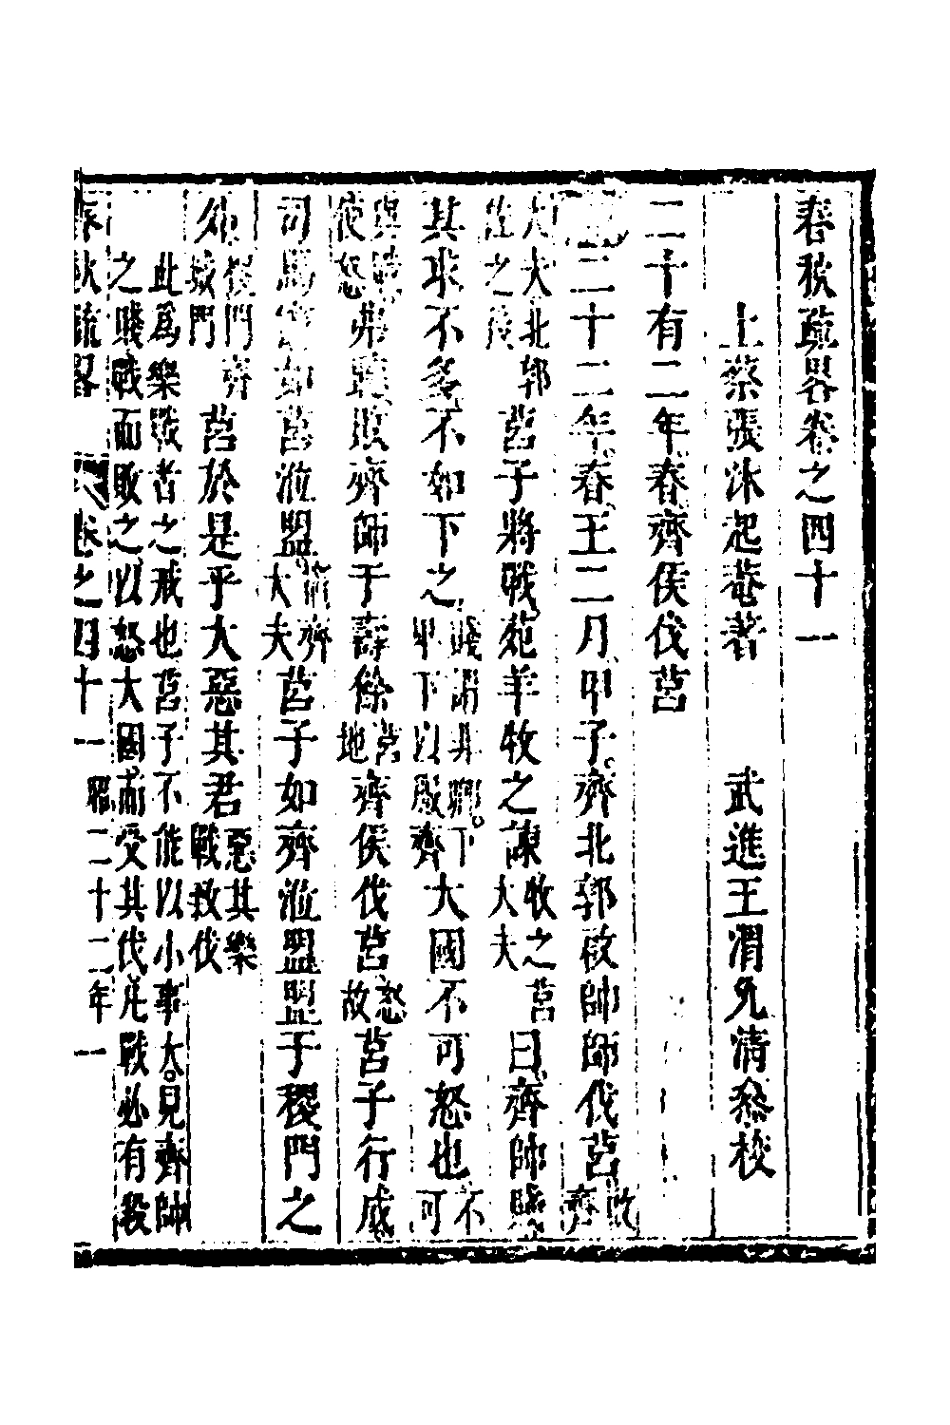 春秋疏畧卷之四十一
上蔡張沐起菴著　武進王渭允清叅校
二十有二年春齊侯伐莒
二十二年春王二月甲子齊北郭啟帥師伐莒啟齊
大夫北郭佐之後莒子將戰苑羊牧之諫牧之莒大夫曰齊帥賤
其求不多不如下之賤謂非卿下甲下以服齊大國不可怒也不可
使怒弗聽敗齊師于壽餘莒地齊侯伐莒怒故莒子行成
司馬竈如莒涖盟竈齊大夫莒子如齊涖盟盟于稷門之
外稷門齊城門莒於是乎大惡其君惡其樂戰致伐
此爲樂戰者之戒也莒子不能以小事大見齊帥
之賤戰而敗之以怒大國而受其伐凡戰必有殺
春秋疏畧　卷之四十一　昭二十二年　一